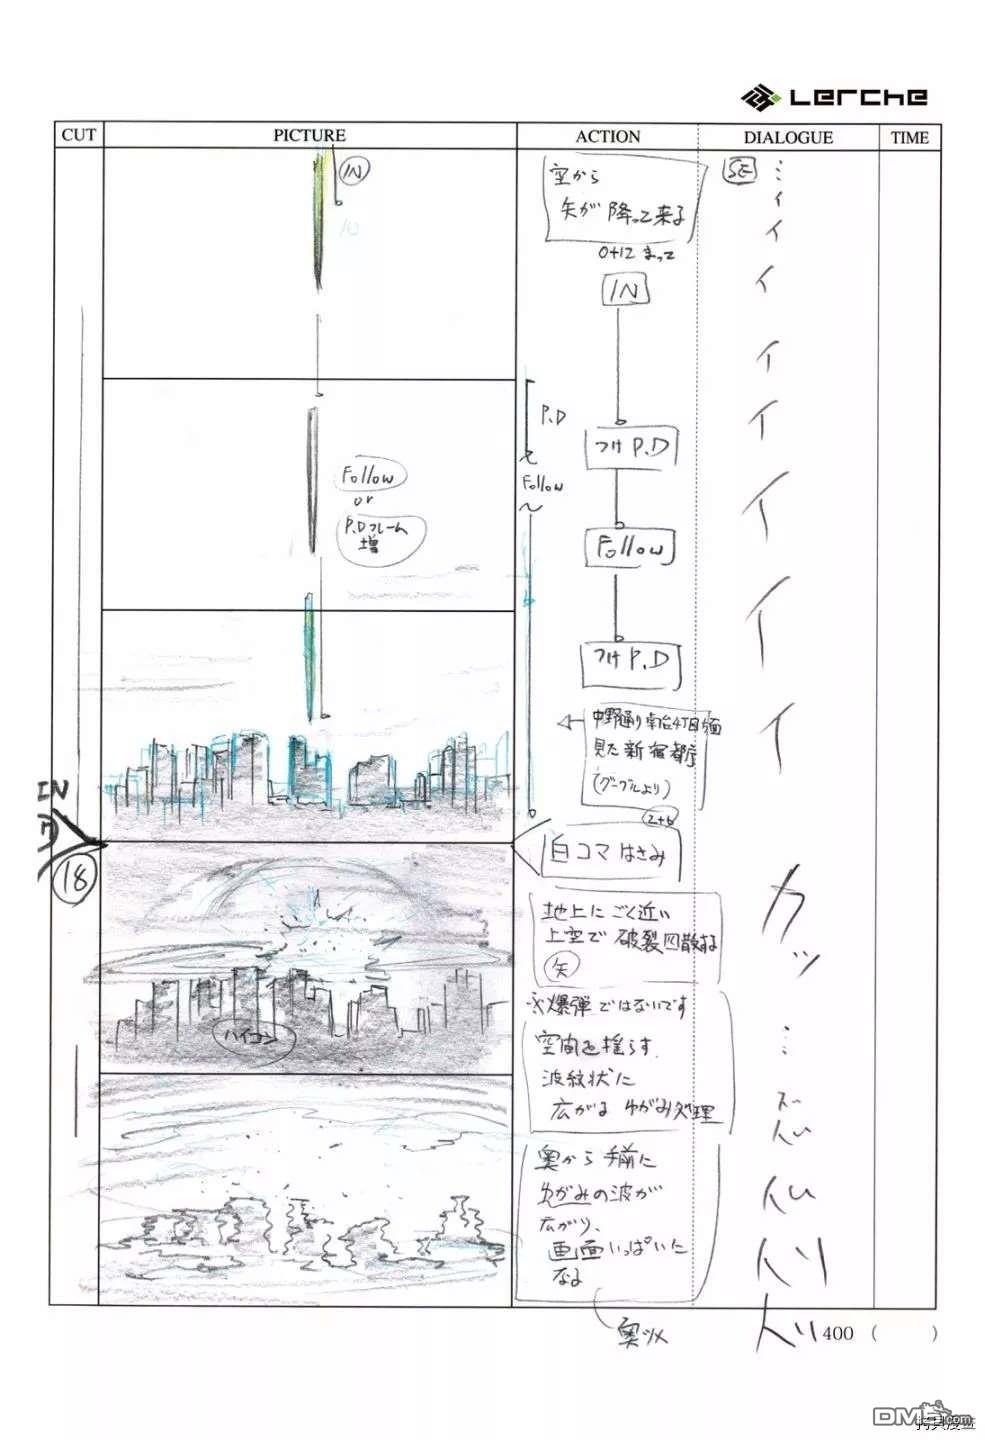 Lerche
CUT
PICTURE
ACTION
DIALOGUE
TIME
IN
空から
矢が降って来る
0+12 まって
IN
SE
イ
イ
イ
イ
イ
イ
イ
イ
P.D
つけP.D
Follow
or
P.Dフレーム
増
Follow
Follow
つけP.D
見た新宿都庁
(グーグルより)
2+6
IN
18
白コマはさみ
カッ
地上にごく近い
上空で破裂四散する
矢
ハイコン
※爆弾ではないです
空間を揺らす
波紋状に
広がるゆがみ処理
奥から手前に
ゆがみの波が
広がり、
画面いっぱいに
なる
400 ( )